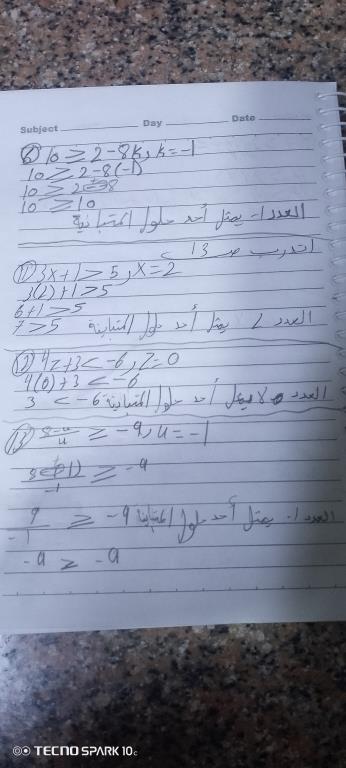 Subject Day Date
8 10 ≥ 2 - 8k, k = -1
10 ≥ 2 - 8(-1)
10 ≥ 2 + 8
10 ≥ 10
العدد 1- يمثل أحد حلول المتباينة
اتدرب صـ 13
11 3x + 1 > 5, x = 2
3(2) + 1 > 5
6 + 1 > 5
7 > 5 العدد 2 يمثل أحد حلول المتباينة
12 4z + 3 < -6, z = 0
4(0) + 3 < -6
3 < -6 العدد 0 لا يمثل أحد حلول المتباينة
13 ≥ -9, u = -1
≥ -9
9/-1 ≥ -9 العدد 1- يمثل أحد حلول المتباينة
-9 ≥ -9
TECNO SPARK 10c